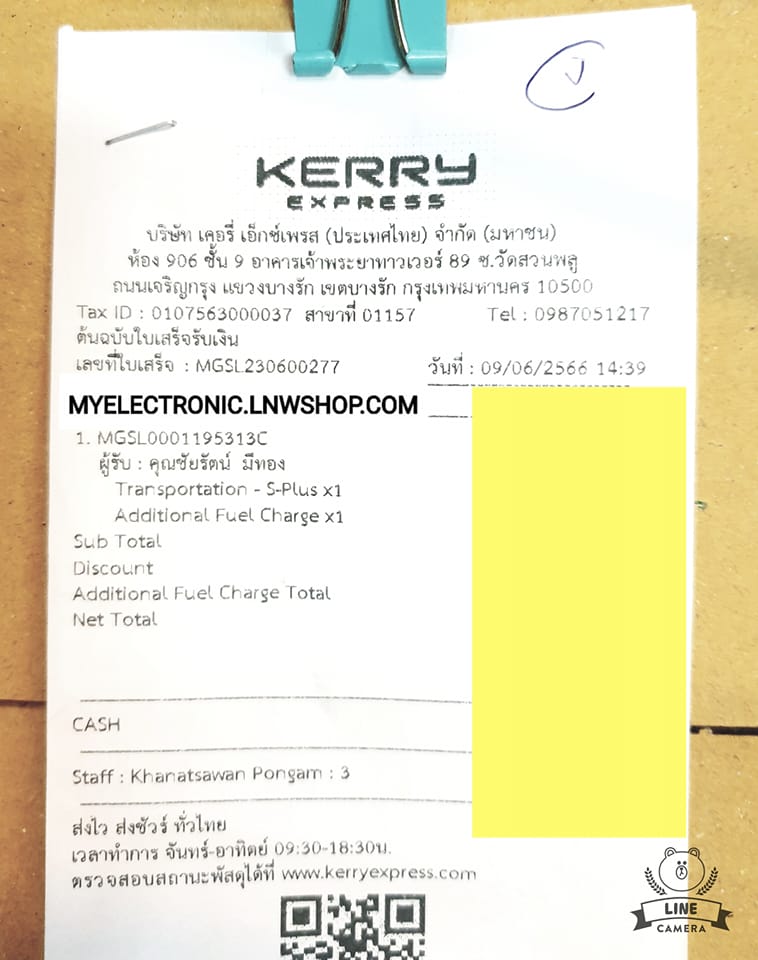 KERRY
EXPRESS
บริษัท เคอรี่ เอ็กซ์เพรส (ประเทศไทย) จำกัด (มหาชน)
ห้อง 906 ชั้น 9 อาคารเจ้าพระยาทาวเวอร์ 89 ซ.วัดสวนพลู
ถนนเจริญกรุง แขวงบางรัก เขตบางรัก กรุงเทพมหานคร 10500
Tax ID : 0107563000037 สาขาที่ 01157 Tel : 0987051217
ต้นฉบับใบเสร็จรับเงิน
เลขที่ใบเสร็จ : MGSL230600277 วันที่ : 09/06/2566 14:39
MYELECTRONIC.LNWSHOP.COM
1. MGSL0001195313C
ผู้รับ : คุณชัยรัตน์ มีทอง
Transportation - S-Plus x1
Additional Fuel Charge x1
Sub Total
Discount
Additional Fuel Charge Total
Net Total
CASH
Staff : Khanatsawan Pongam : 3
ส่งไว ส่งชัวร์ ทั่วไทย
เวลาทำการ จันทร์-อาทิตย์ 09:30-18:30น.
ตรวจสอบสถานะพัสดุได้ที่ www.kerryexpress.com
LINE
CAMERA